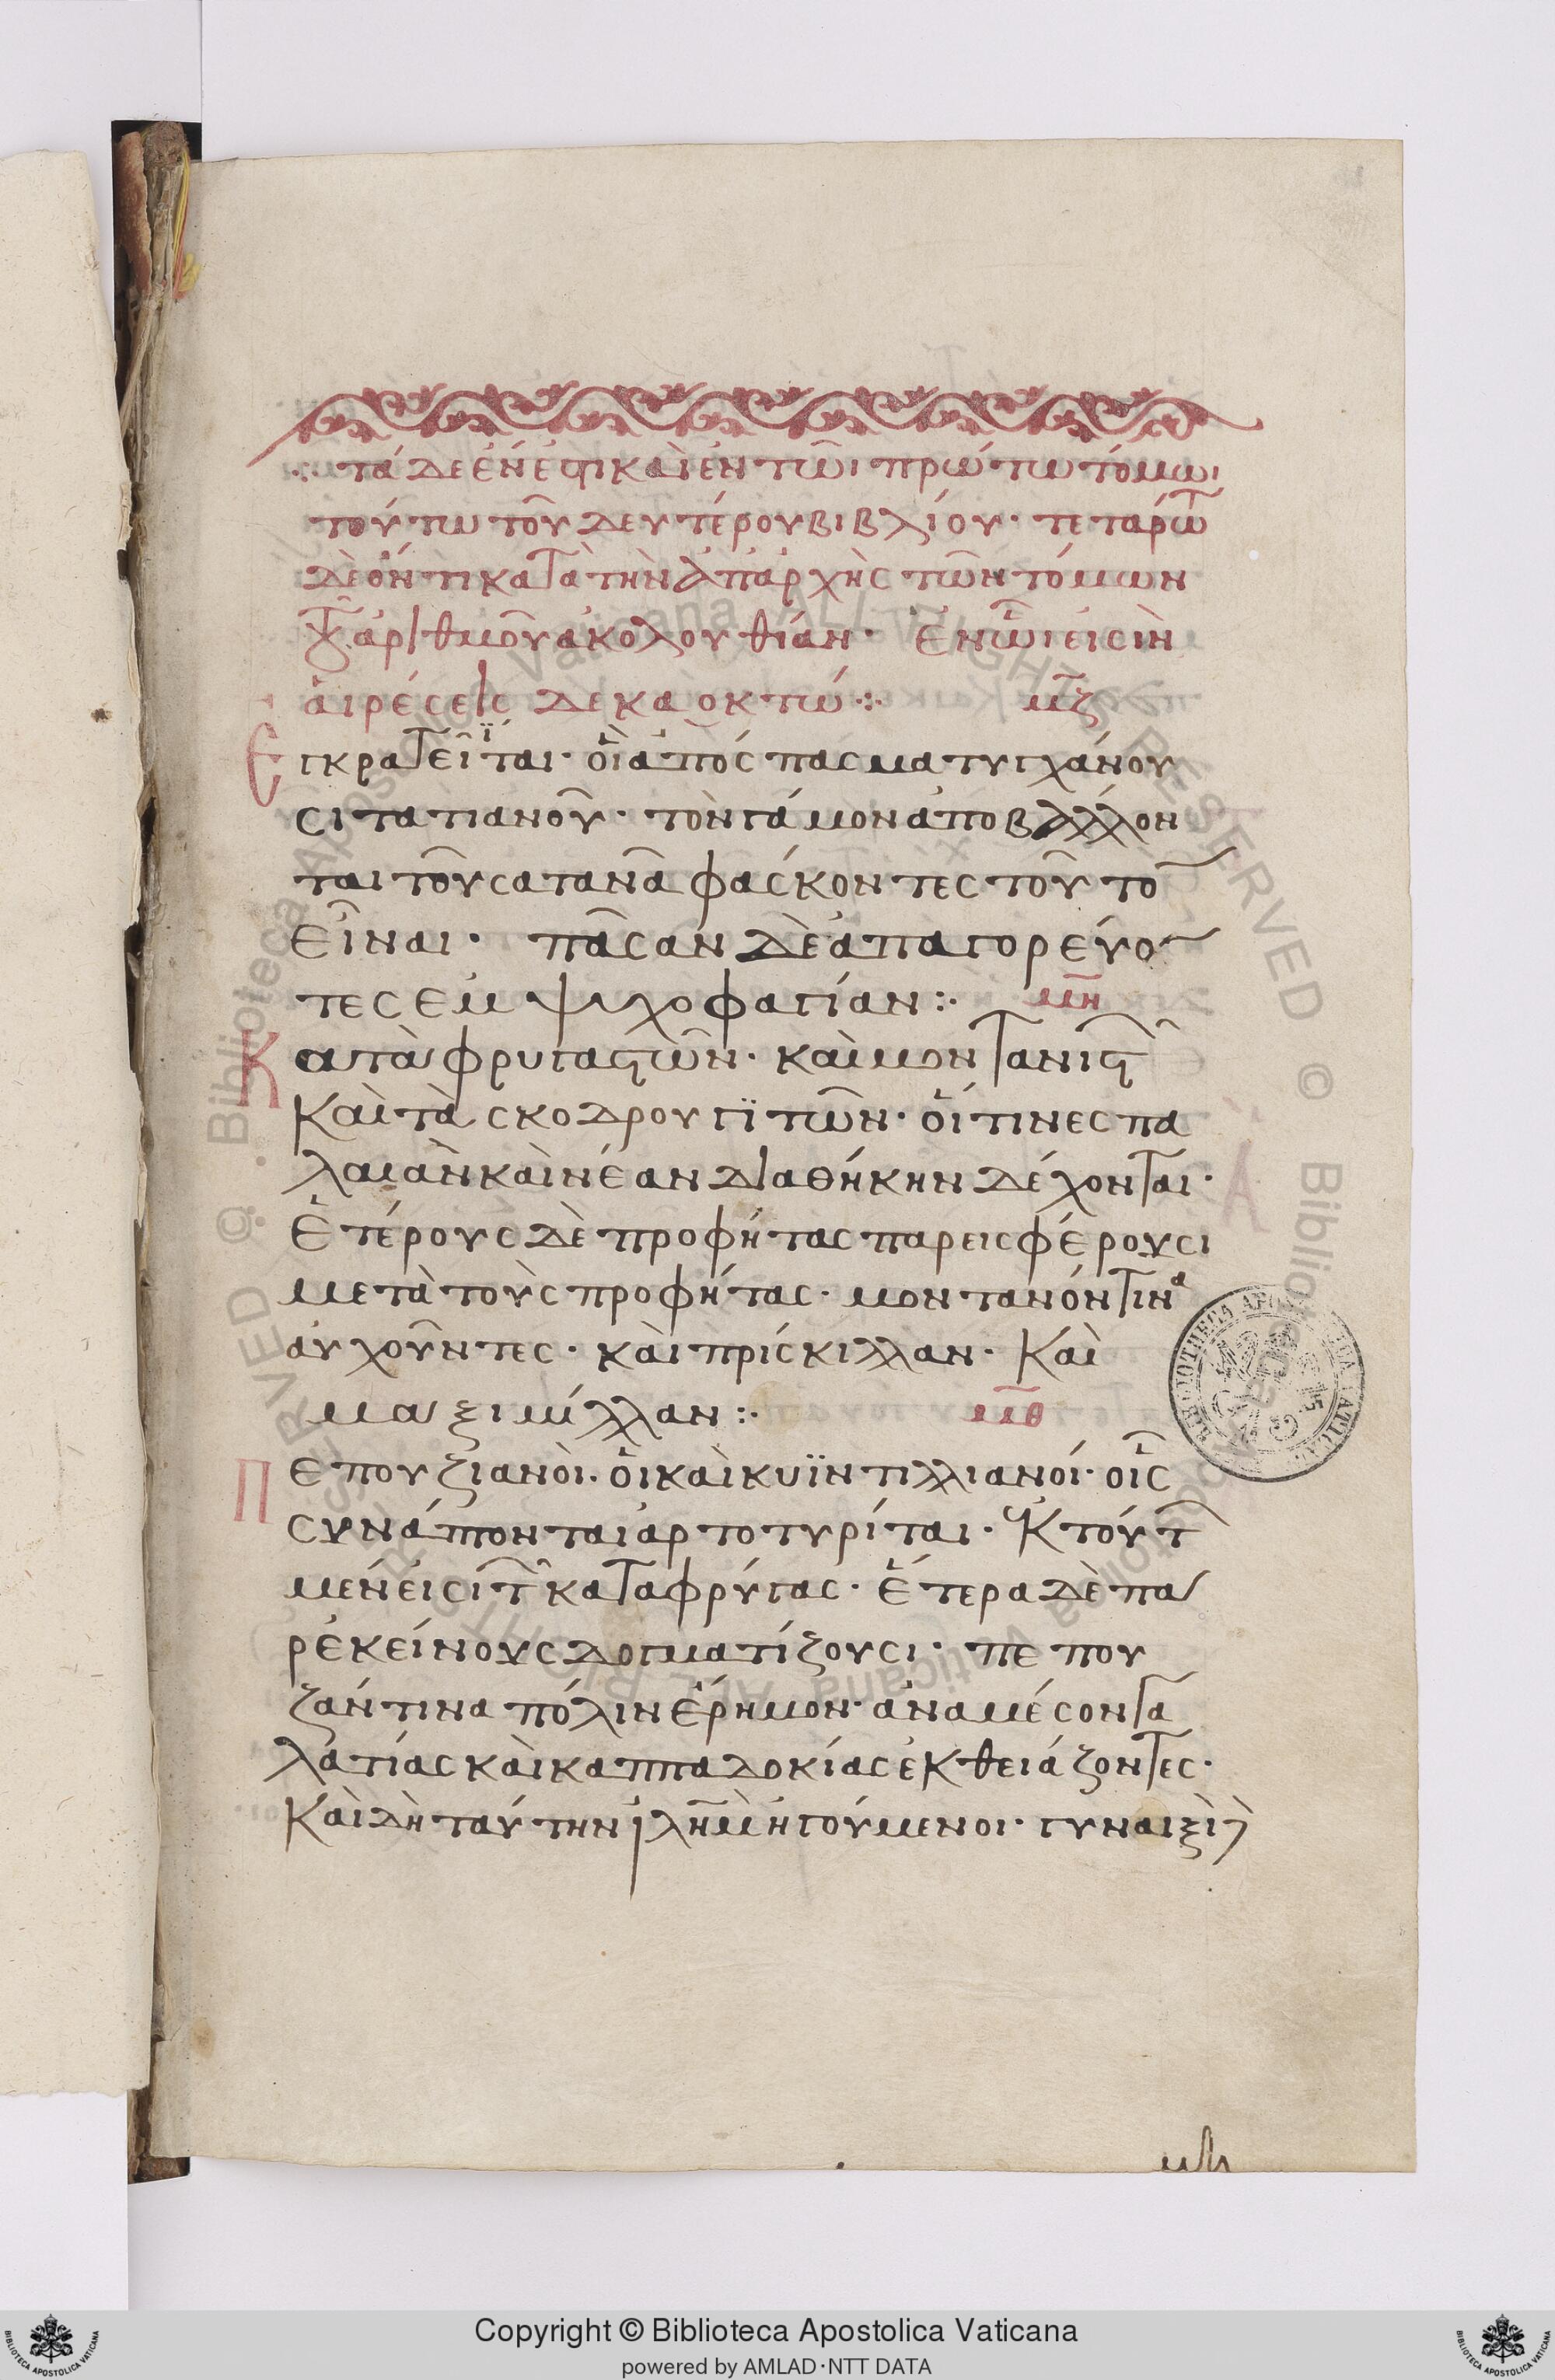 τάδε ἔνεστι καὶ ἐν τῶι πρώτω τόμωι
τούτω τοῦ δευτέρου βιβλίου· τετάρτω
δὲ ὄντι κατὰ τὴν ἀπαρχῆς τῶν τόμων
τοῦ ἀριθμοῦ ἀκολουθίαν· ἐν ὧι εἰσὶν
αἱρέσεις δεκαοκτώ : μζ
Εγκρατεῖται· οἳ ἀπόσπασμα τυγχάνου
σι τατιανοῦ· τὸν γάμον ἀποβάλλον
ται τοῦ σατανᾶ φάσκοντες τοῦτο
εἶναι· πᾶσαν δὲ ἀπαγορεύον
τες ἐμψυχοφαγίαν : μη
Κατὰ φρυγαστῶν· καὶ μοντανιστῶν
καὶ τασκοδρουγϊτῶν· οἵτινες πα
λαιὰν καὶ νέαν διαθήκην δέχονται·
ἑτέρους δὲ προφήτας παρεισφέρουσι
μετὰ τοὺς προφήτας· μοντανόν τινα
αὐχοῦντες· καὶ πρίσκιλλαν· καὶ
μαξιμίλλαν : μθ
Πεπουζιανοὶ· οἱ καὶ κυϊντιλλιανοί· οἷς
συνάπτονται ἀρτοτυρίται· ἐκ τούτων
μέν εἰσι τῶν κατα φρύγας· ἕτερα δὲ πα
ρ ἐκείνους δογματίζουσι· πέπου
ζάν τινα πόλιν ἔρημον· ἀναμέσον γα
λατίας καὶ καππαδοκίας ἐκθειάζοντες·
καὶ δὴ ταύτην ιλημ ἡγούμενοι· γυναιξὶ
Copyright © Biblioteca Apostolica Vaticana
powered by AMLAD·NTT DATA